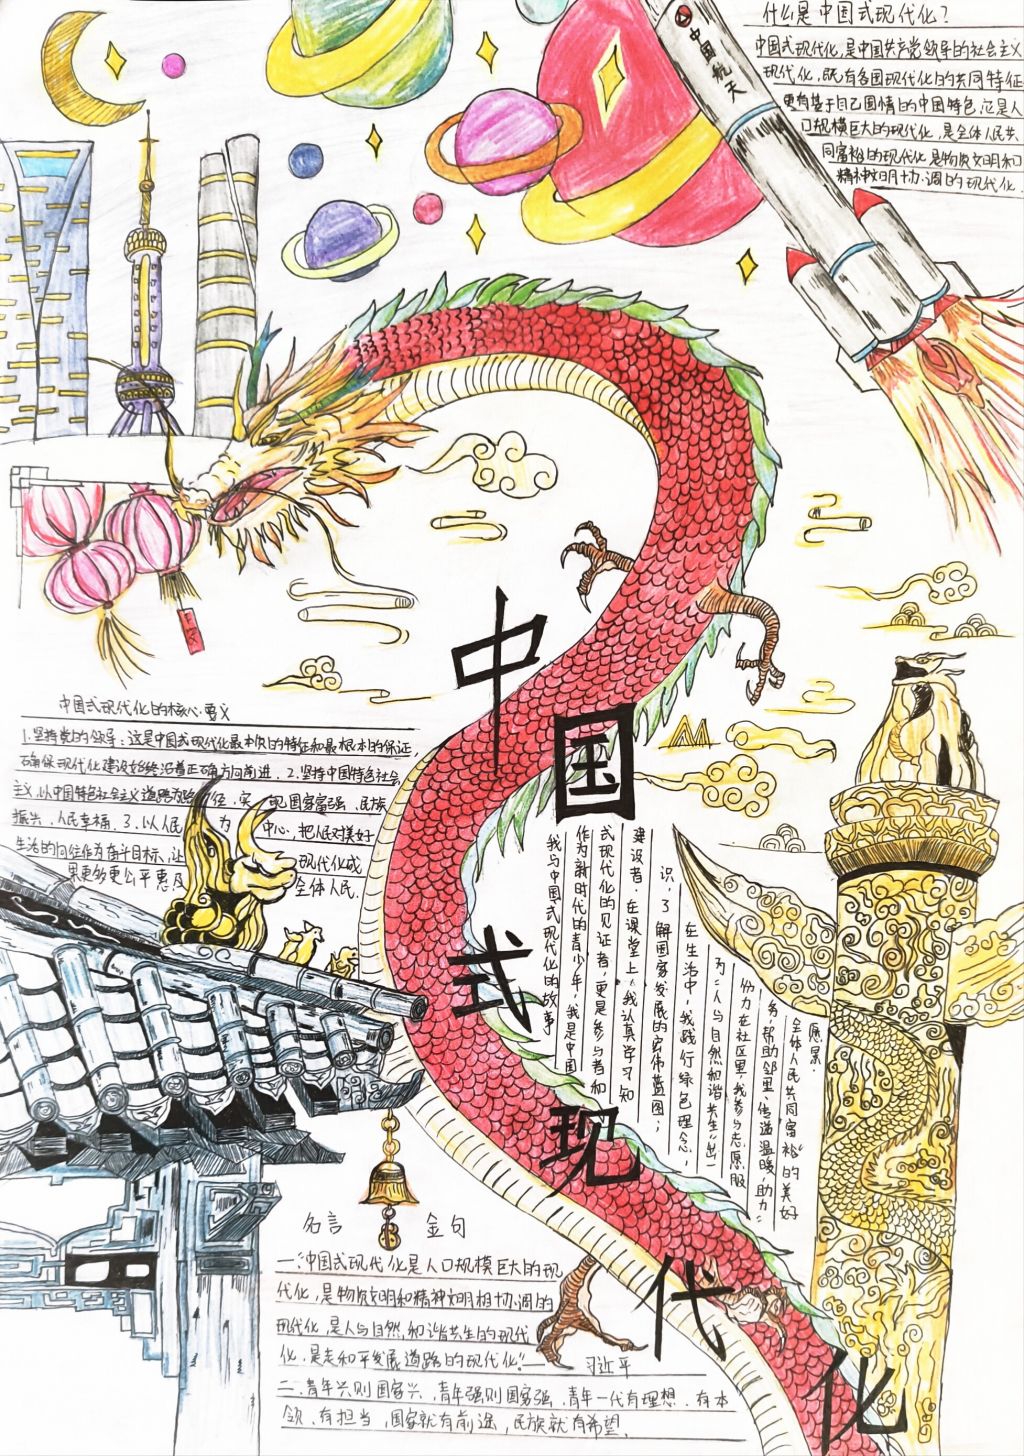 什么是中国式现代化？
中国式现代化，是中国共产党领导的社会主义
现代化，既有各国现代化的共同特征
更有基于自己国情的中国特色，它是人
口规模巨大的现代化，是全体人民共
同富裕的现代化是物质文明和
精神文明协调的现代化．
中国航天
中国式现代化
中国式现代化的核心要义
1.坚持党的领导：这是中国式现代化最本质的特征和最根本的保证，
确保现代化建设始终沿着正确方向前进．2.坚持中国特色社会
主义，以中国特色社会主义道路为路径，实现国家富强、民族
振兴、人民幸福．3.以人民为中心，把人民对美好
生活的向往作为奋斗目标，让现代化成
果更多更公平惠及全体人民．
我与中国式现代化的故事
作为新时代的青少年，我是中国
式现代化的见证者，更是参与者和
建设者．在课堂上，我认真学习知
识，了解国家发展的宏伟蓝图；
在生活中，我践行绿色理念，
为“人与自然和谐共生”出一
份力在社区里，我参与志愿服
务，帮助邻里、传递温暖，助力“
全体人民共同富裕”的美好
愿景．
名言 金句
一．“中国式现代化是人口规模巨大的现
代化，是物质文明和精神文明相协调的
现代化，是人与自然，和谐共生的现代
化，是走和平发展道路的现代化．”——习近平
二．青年兴则国家兴，青年强则国家强．青年一代有理想．有本
领．有担当，国家就有前途，民族就有希望．